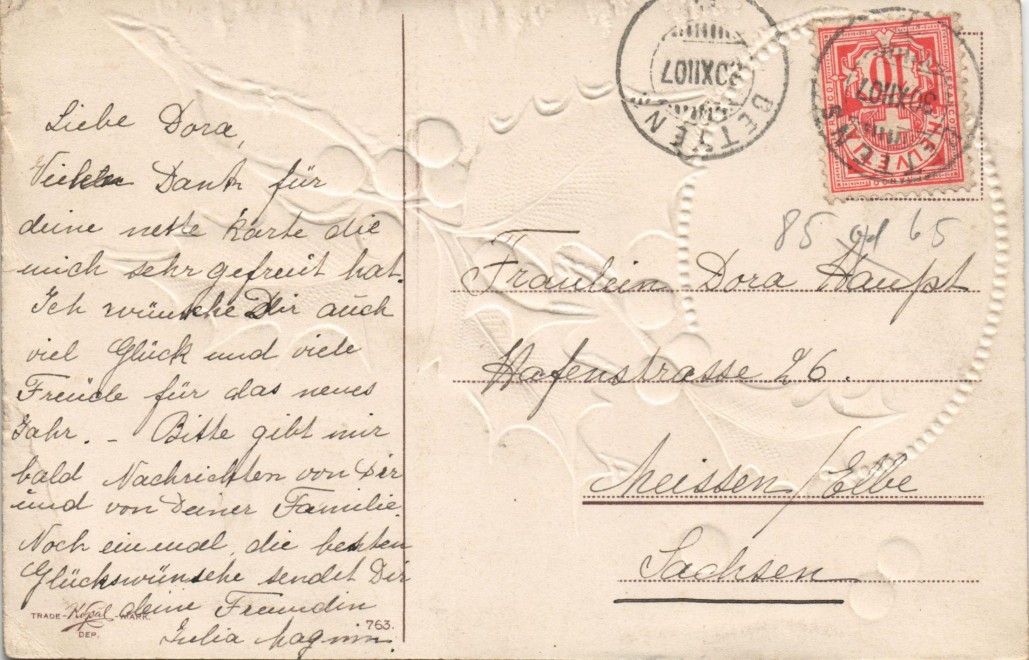 Liebe Dora,
Vielen Dank für
deine nette Karte die
mich sehr gefreut hat.
Ich wünsche Dir auch
viel Glück und viele
Freude für das neues
Jahr. – Bitte gibt mir
bald Nachrichten von Dir
und von Deiner Familie.
Noch einmal, die besten
Glückswünsche sendet Dir
deine Freundin
Julia Magnin.
TRADE- Kopal -MARK.
DEP.
763.
BETTEN
30XII07
10
HELVETIA
BETTENS
30XII07
85 65
Fräulein Dora Haupt
Hafenstrasse 26.
Meissen/Elbe
Sachsen